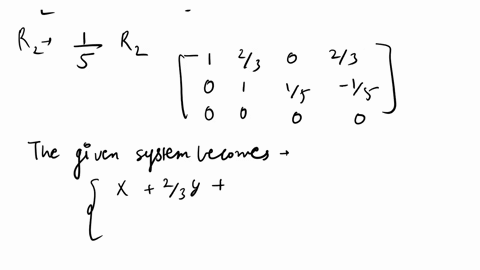 R₂→ 1/5 R₂
[ 1 2/3 0 2/3
0 1 1/5 -1/5
0 0 0 0 ]
The given system becomes →
{ x + 2/3 y +